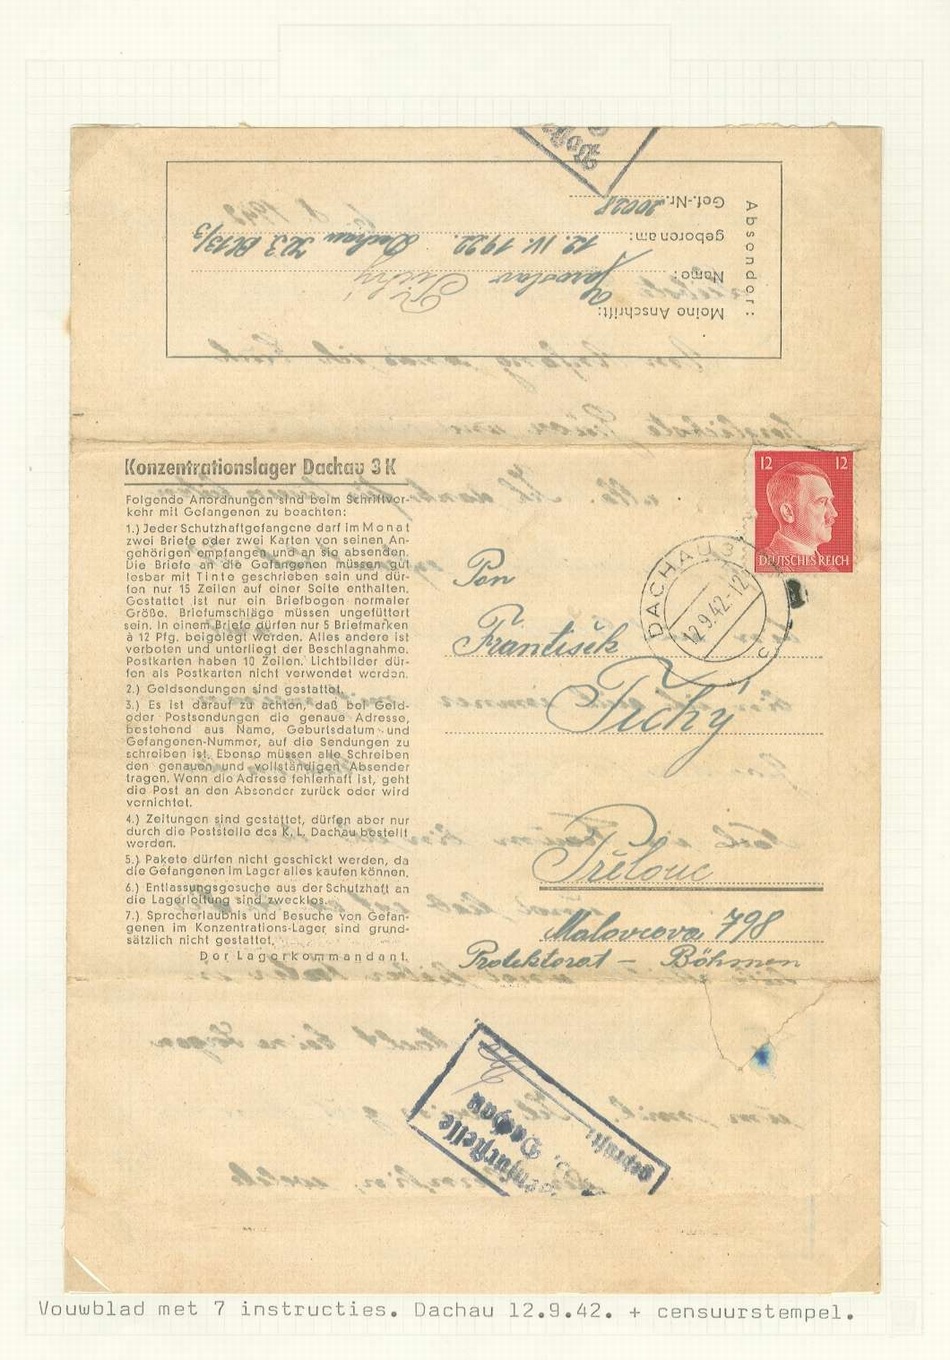 Absender:
Meine Anschrift:
Name: Jaroslav Tichý
geboren am: 12. IV. 1922. Dachau 3K Bl 13/3
Gef.-Nr. 20028
Konzentrationslager Dachau 3 K
Folgende Anordnungen sind beim Schriftver-
kehr mit Gefangenen zu beachten:
1.) Jeder Schutzhaftgefangene darf im Monat
zwei Briefe oder zwei Karten von seinen An-
gehörigen empfangen und an sie absenden.
Die Briefe an die Gefangenen müssen gut
lesbar mit Tinte geschrieben sein und dür-
fen nur 15 Zeilen auf einer Seite enthalten.
Gestattet ist nur ein Briefbogen normaler
Größe. Briefumschläge müssen ungefüttert
sein. In einem Briefe dürfen nur 5 Briefmarken
à 12 Pfg. beigelegt werden. Alles andere ist
verboten und unterliegt der Beschlagnahme.
Postkarten haben 10 Zeilen. Lichtbilder dür-
fen als Postkarten nicht verwendet werden.
2.) Geldsendungen sind gestattet.
3.) Es ist darauf zu achten, daß bei Geld-
oder Postsendungen die genaue Adresse,
bestehend aus Name, Geburtsdatum und
Gefangenen-Nummer, auf die Sendungen zu
schreiben ist. Ebenso müssen alle Schreiben
den genauen und vollständigen Absender
tragen. Wenn die Adresse fehlerhaft ist, geht
die Post an den Absender zurück oder wird
vernichtet.
4.) Zeitungen sind gestattet, dürfen aber nur
durch die Poststelle des K. L. Dachau bestellt
werden.
5.) Pakete dürfen nicht geschickt werden, da
die Gefangenen im Lager alles kaufen können.
6.) Entlassungsgesuche aus der Schutzhaft an
die Lagerleitung sind zwecklos.
7.) Sprecherlaubnis und Besuche von Gefan-
genen im Konzentrations-Lager sind grund-
sätzlich nicht gestattet.
Der Lagerkommandant.
12 12
DEUTSCHES REICH
DACHAU 3
12.9.42.-12
c
Pan
František
Tichý
Přelouc
Malovcova 798
Protektorat – Böhmen
Dachau
geprüft:
Vouwblad met 7 instructies. Dachau 12.9.42. + censuurstempel.